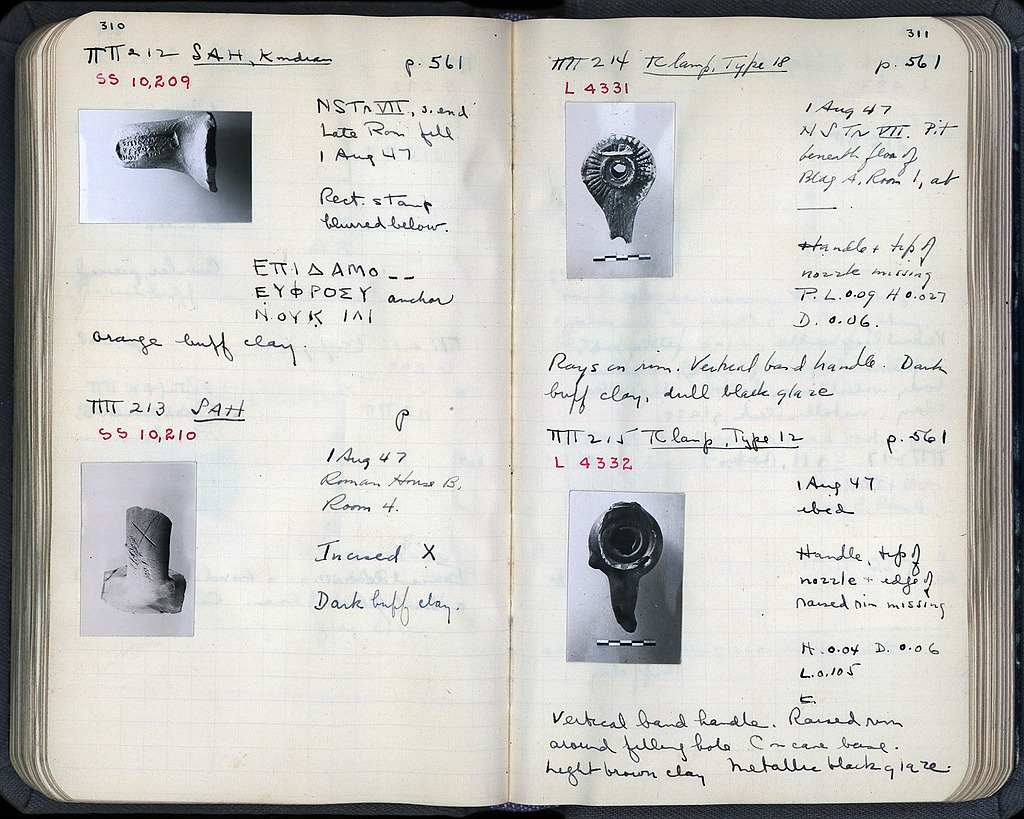 310
ΠΠ 212 SAH, Knidian p. 561
SS 10,209
NSTr VII, s. end
Late Rom fill
1 Aug 47
Rect. stamp
blurred below.
ΕΠΙΔΑΜΟ--
ΕΥΦΡΟΣΥ anchor
ΝΟΥΚ ΙΛΙ
orange buff clay.
ΠΠ 213 SAH p
SS 10,210
1 Aug 47
Roman House B,
Room 4.
Incised X
Dark buff clay.
311
ΠΠ 214 TC lamp, Type 18 p. 561
L 4331
1 Aug 47
NSTr VII. Pit
beneath floor of
Bldg A, Room 1, at
Handle + tip of
nozzle missing
P.L. 0.09 H 0.027
D. 0.06.
Rays on rim. Vertical band handle. Dark
buff clay, dull black glaze
ΠΠ 215 TC lamp, Type 12 p. 561
L 4332
1 Aug 47
ibed
Handle, tip of
nozzle + edge of
raised rim missing
H. 0.04 D. 0.06
L. 0.105
Vertical band handle. Raised rim
around filling hole Concave base.
Light brown clay Metallic black glaze.